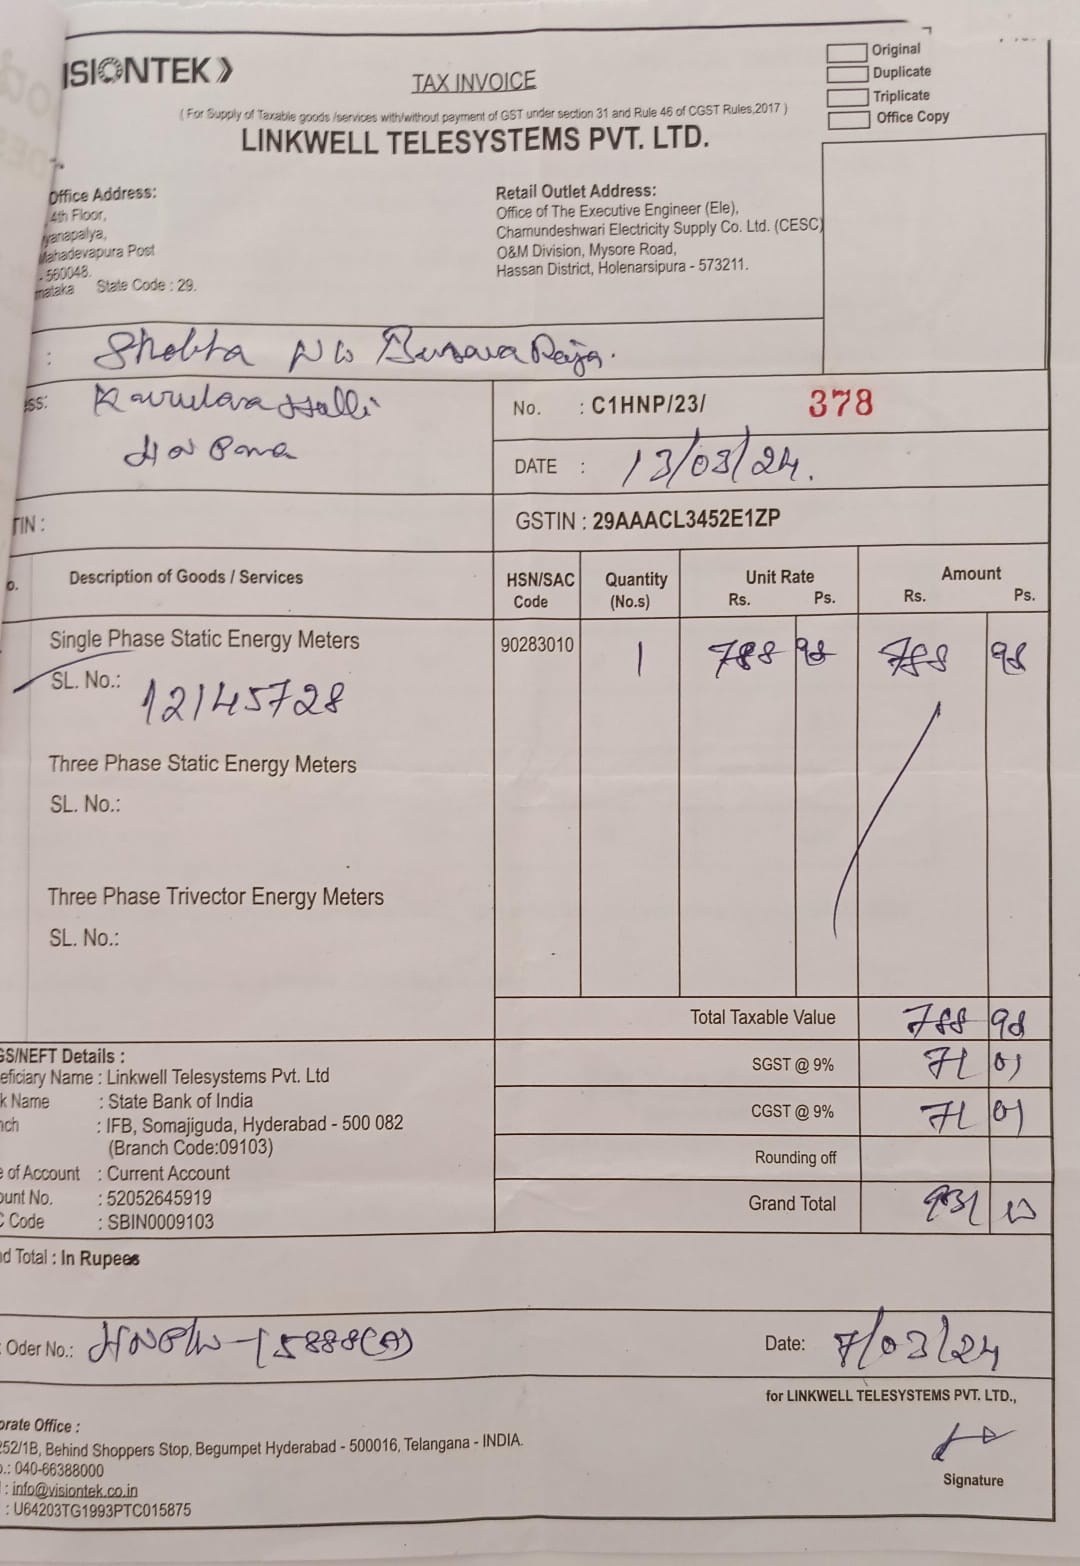 ISIONTEK
TAX INVOICE
Original
Duplicate
Triplicate
Office Copy
( For Supply of Taxable goods /services with/without payment of GST under section 31 and Rule 46 of CGST Rules,2017 )
LINKWELL TELESYSTEMS PVT. LTD.
Office Address:
4th Floor,
yanapalya,
Mahadevapura Post
- 560048.
mataka State Code : 29.
Retail Outlet Address:
Office of The Executive Engineer (Ele),
Chamundeshwari Electricity Supply Co. Ltd. (CESC)
O&M Division, Mysore Road,
Hassan District, Holenarsipura - 573211.
: Shobha
ess:
No. : C1HNP/23/ 378
DATE : 13/03/24.
TIN :
GSTIN : 29AAACL3452E1ZP
o. Description of Goods / Services HSN/SAC Code Quantity (No.s) Unit Rate Rs. Ps. Amount Rs. Ps.
Single Phase Static Energy Meters 90283010 1 788 98 788 98
SL. No.: 12145728
Three Phase Static Energy Meters
SL. No.:
Three Phase Trivector Energy Meters
SL. No.:
Total Taxable Value 788 98
SGST @ 9% 71 01
CGST @ 9% 71 01
Rounding off
Grand Total 931
GS/NEFT Details :
eficiary Name : Linkwell Telesystems Pvt. Ltd
k Name : State Bank of India
nch : IFB, Somajiguda, Hyderabad - 500 082
(Branch Code:09103)
e of Account : Current Account
ount No. : 52052645919
C Code : SBIN0009103
nd Total : In Rupees
Oder No.: 15888(A) Date: 7/03/24
for LINKWELL TELESYSTEMS PVT. LTD.,
Signature
orate Office :
252/1B, Behind Shoppers Stop, Begumpet Hyderabad - 500016, Telangana - INDIA.
o.: 040-66388000
: info@visiontek.co.in
: U64203TG1993PTC015875